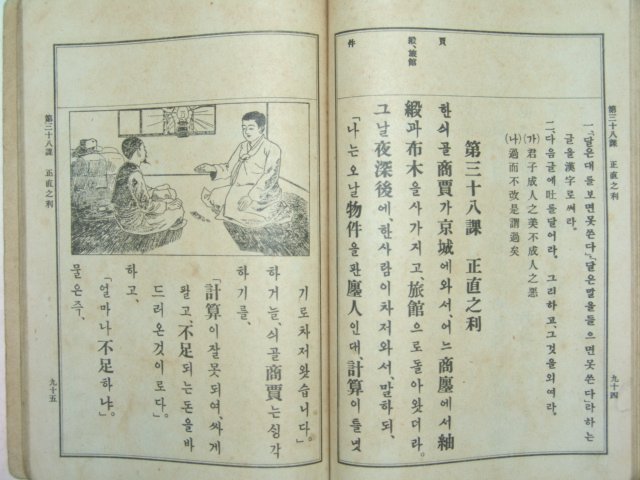 第三十八課 正直之利
九十四
一、「달은대를보면못쓴다」「달은말을들으면못쓴다」라하는
글을漢字로써라。
二、다음글에吐를달어라。그리하고、그것을외여라。
(가)君子成人之美不成人之惡
(나)過而不改是謂過矣
第三十八課 正直之利
賈
한싀골商賈가京城에와서、어느商廛에서紬
緞、旅館
緞과布木을사가지고、旅館으로돌아왓더라。
그날夜深後에、한사람이차저와서、말하되、
件
「나는오날物件을판廛人인대、計算이틀녓
기로차저왓습니다。」
하거늘싀골商賈는싱각
하기를、
「計算이잘못되여、싸게
팔고、不足되는돈을바
드러온것이로다」
하고、
「얼마나不足하냐。」
물은즉、
第三十八課 正直之利
九十五